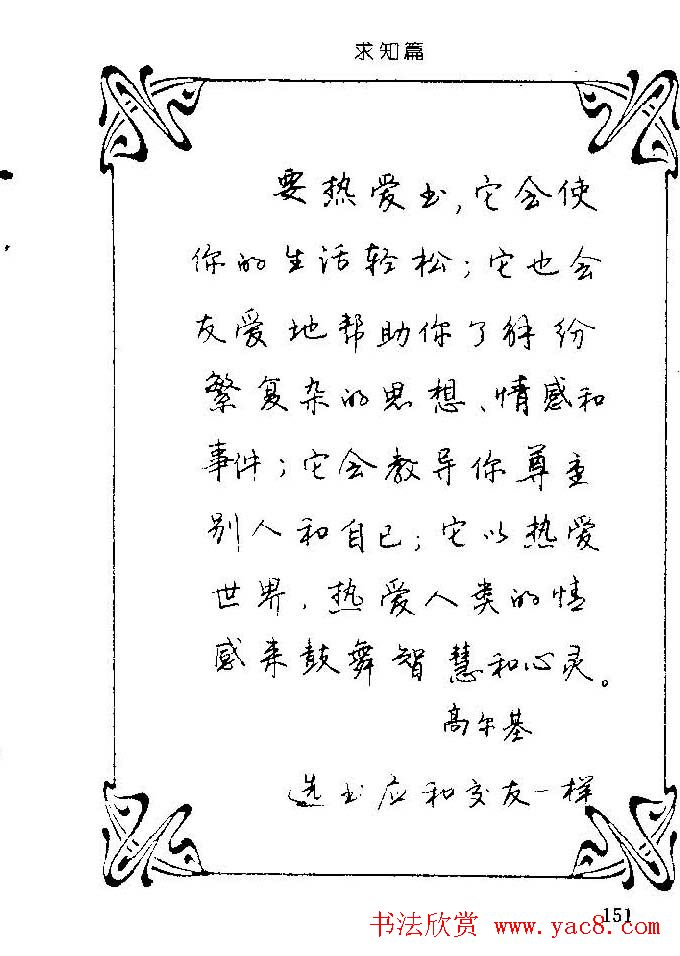 求知篇
要热爱书,它会使
你的生活轻松;它也会
友爱地帮助你了解纷
繁复杂的思想、情感和
事件;它会教导你尊重
别人和自己;它以热爱
世界、热爱人类的情
感来鼓舞智慧和心灵。
高尔基
选书应和交友一样
151
书法欣赏 www.yac8.com